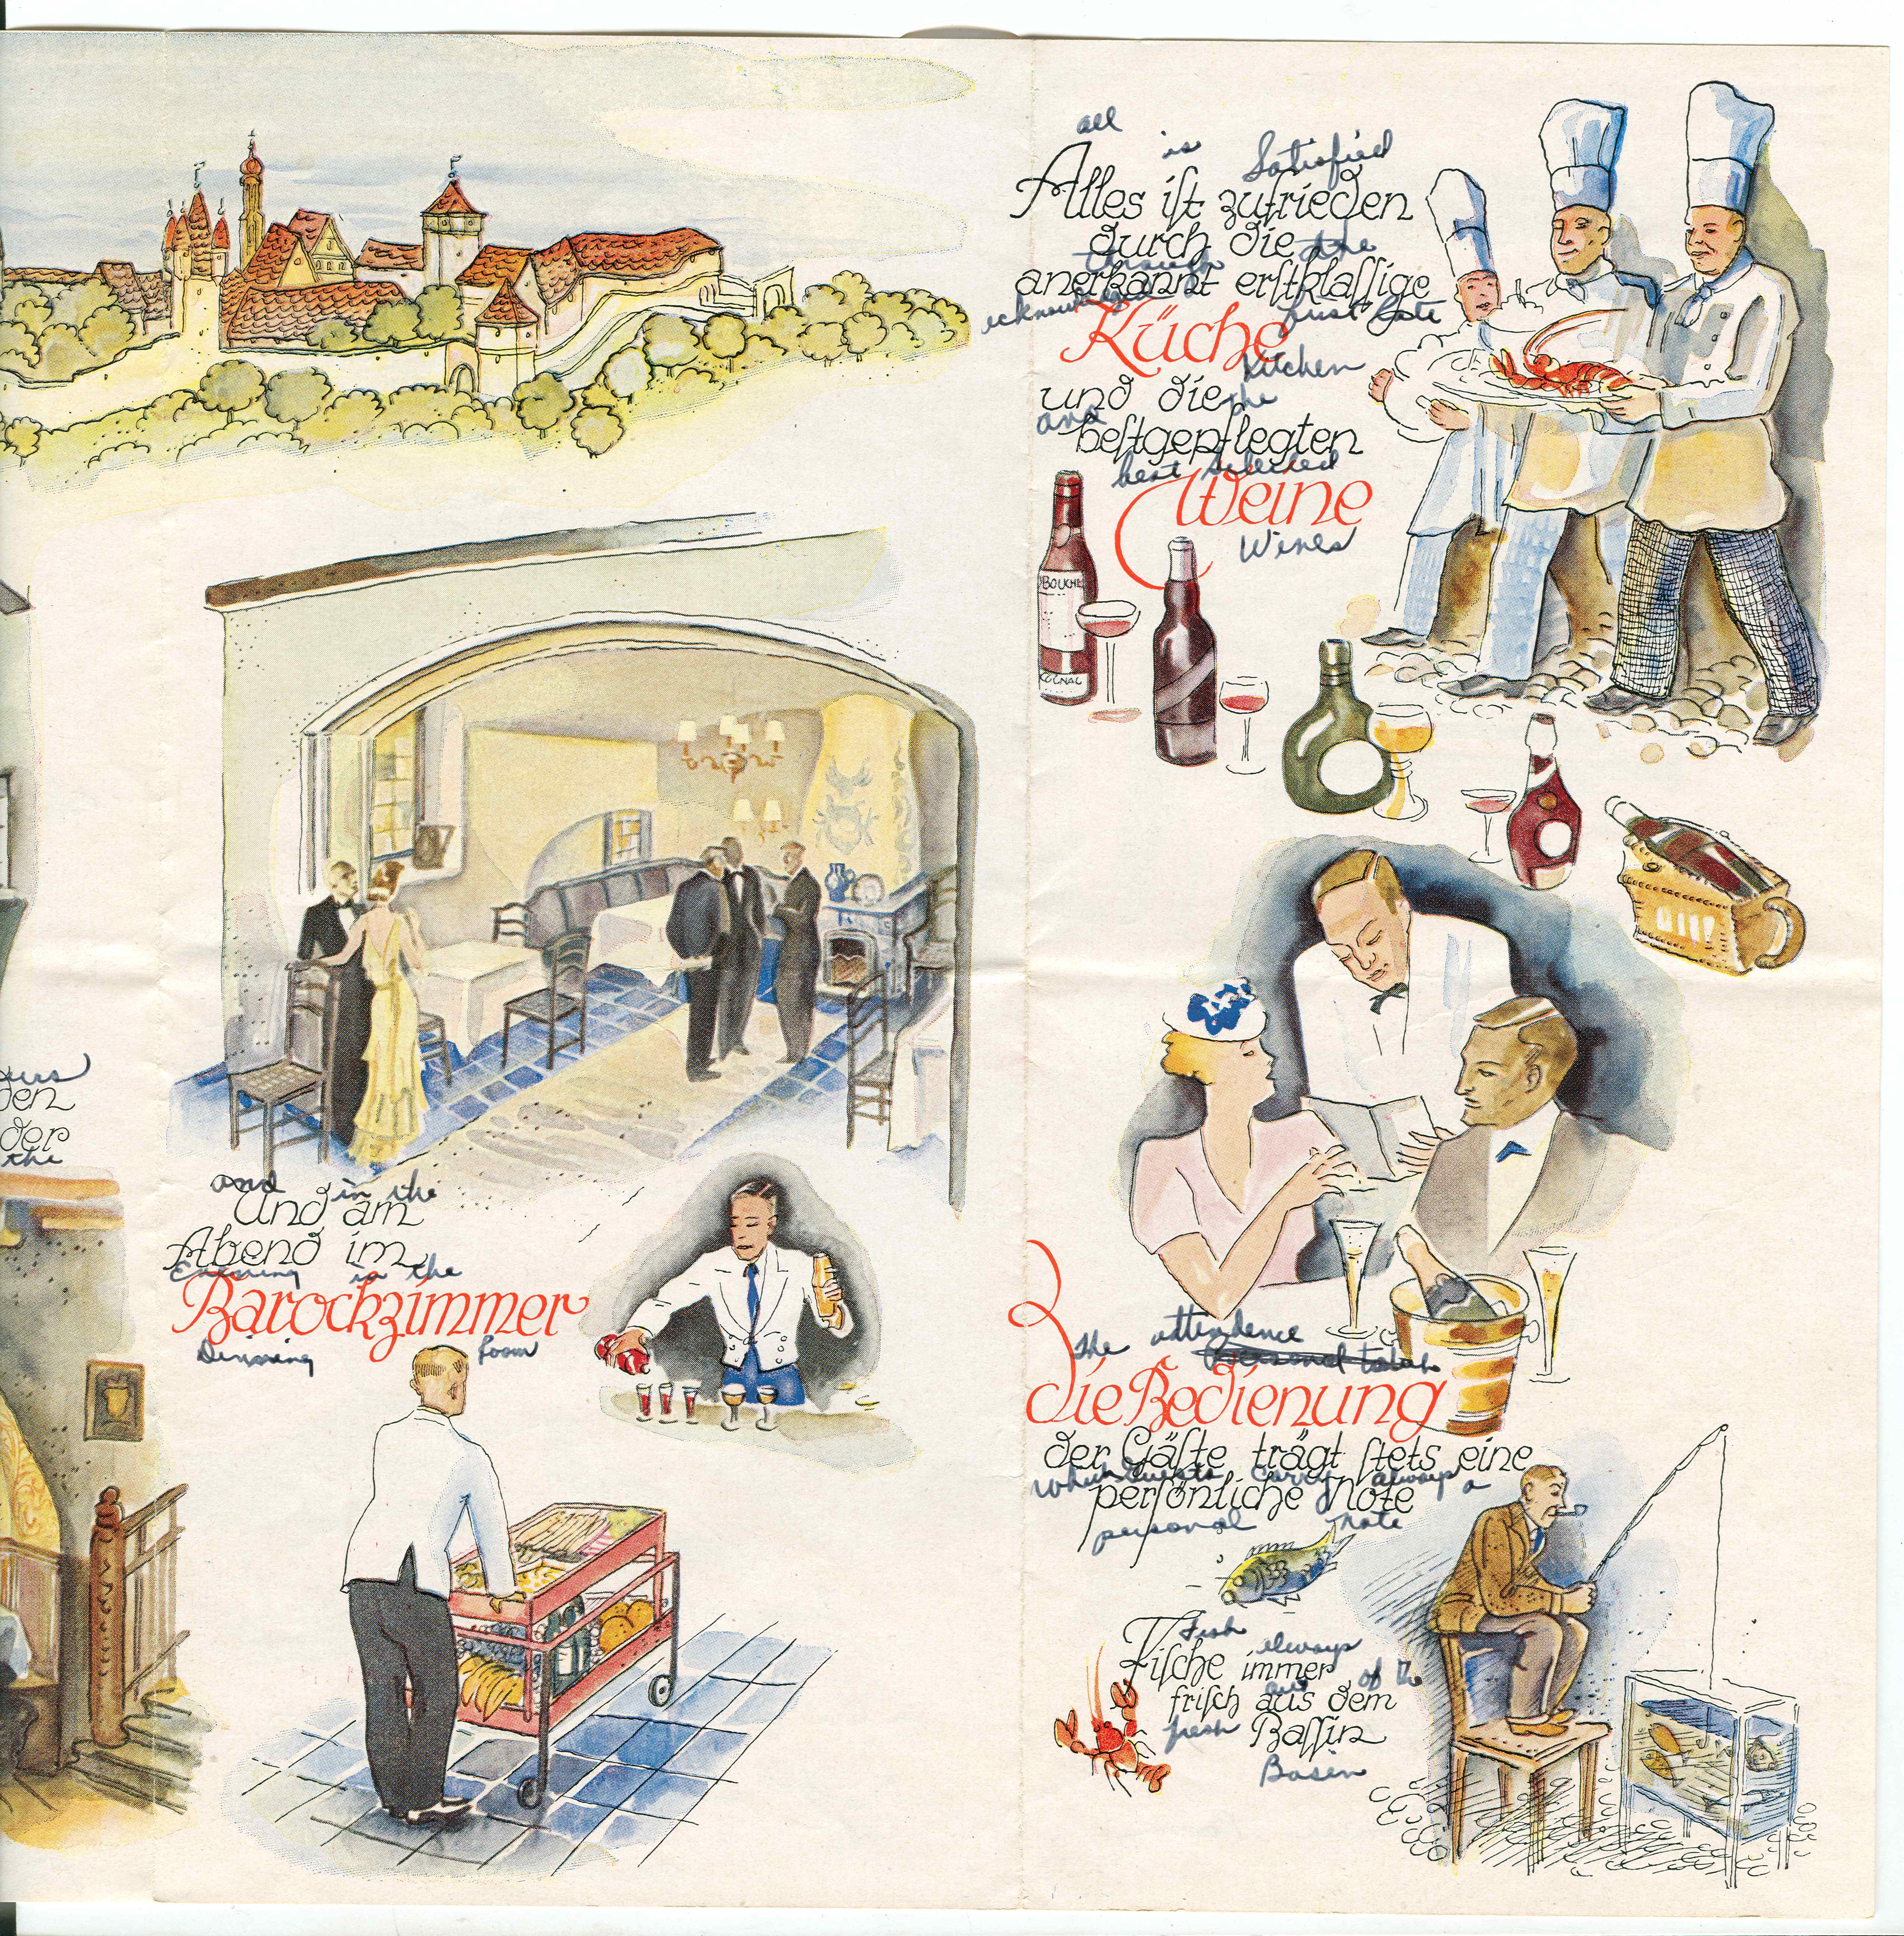 urs
den
der
the
and in the
Und am
Abend im
Evening in the
Barockzimmer
Dinning room
all is Satisfied
Alles iſt zufrieden
durch die
through the
anerkannt erſtklaſſige
first
Küche
Kitchen
und die
and the
beſtgepflegten
best selected
Weine
Wines
BOUCHE
COGNAC
the attendence
die Bedienung
der Gäſte trägt ſtets eine
Guests carry always a
perſönliche Note
personal note
Fish always
Fiſche immer
out of the
friſch aus dem
fresh
Baſſin
Basin